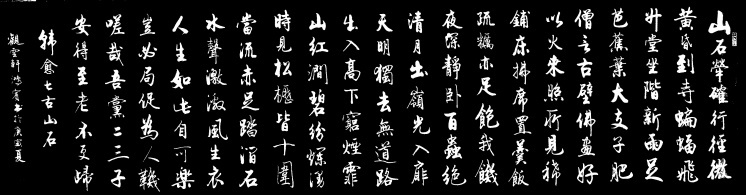 山石犖確行徑微
黃昏到寺蝙蝠飛
升堂坐階新雨足
芭蕉葉大支子肥
僧言古壁佛畫好
以火來照所見稀
鋪床掃席置羹飯
疏糲亦足飽我饑
夜深靜臥百蟲絕
清月出嶺光入扉
天明獨去無道路
出入高下窮煙霏
山紅澗碧紛爛漫
時見松櫪皆十圍
當流赤足踏澗石
水聲激激風生衣
人生如此自可樂
豈必局促為人鞿
嗟哉吾黨二三子
安得至老不更歸
韓愈七古山石
觀雲軒鴻書於庚寅夏